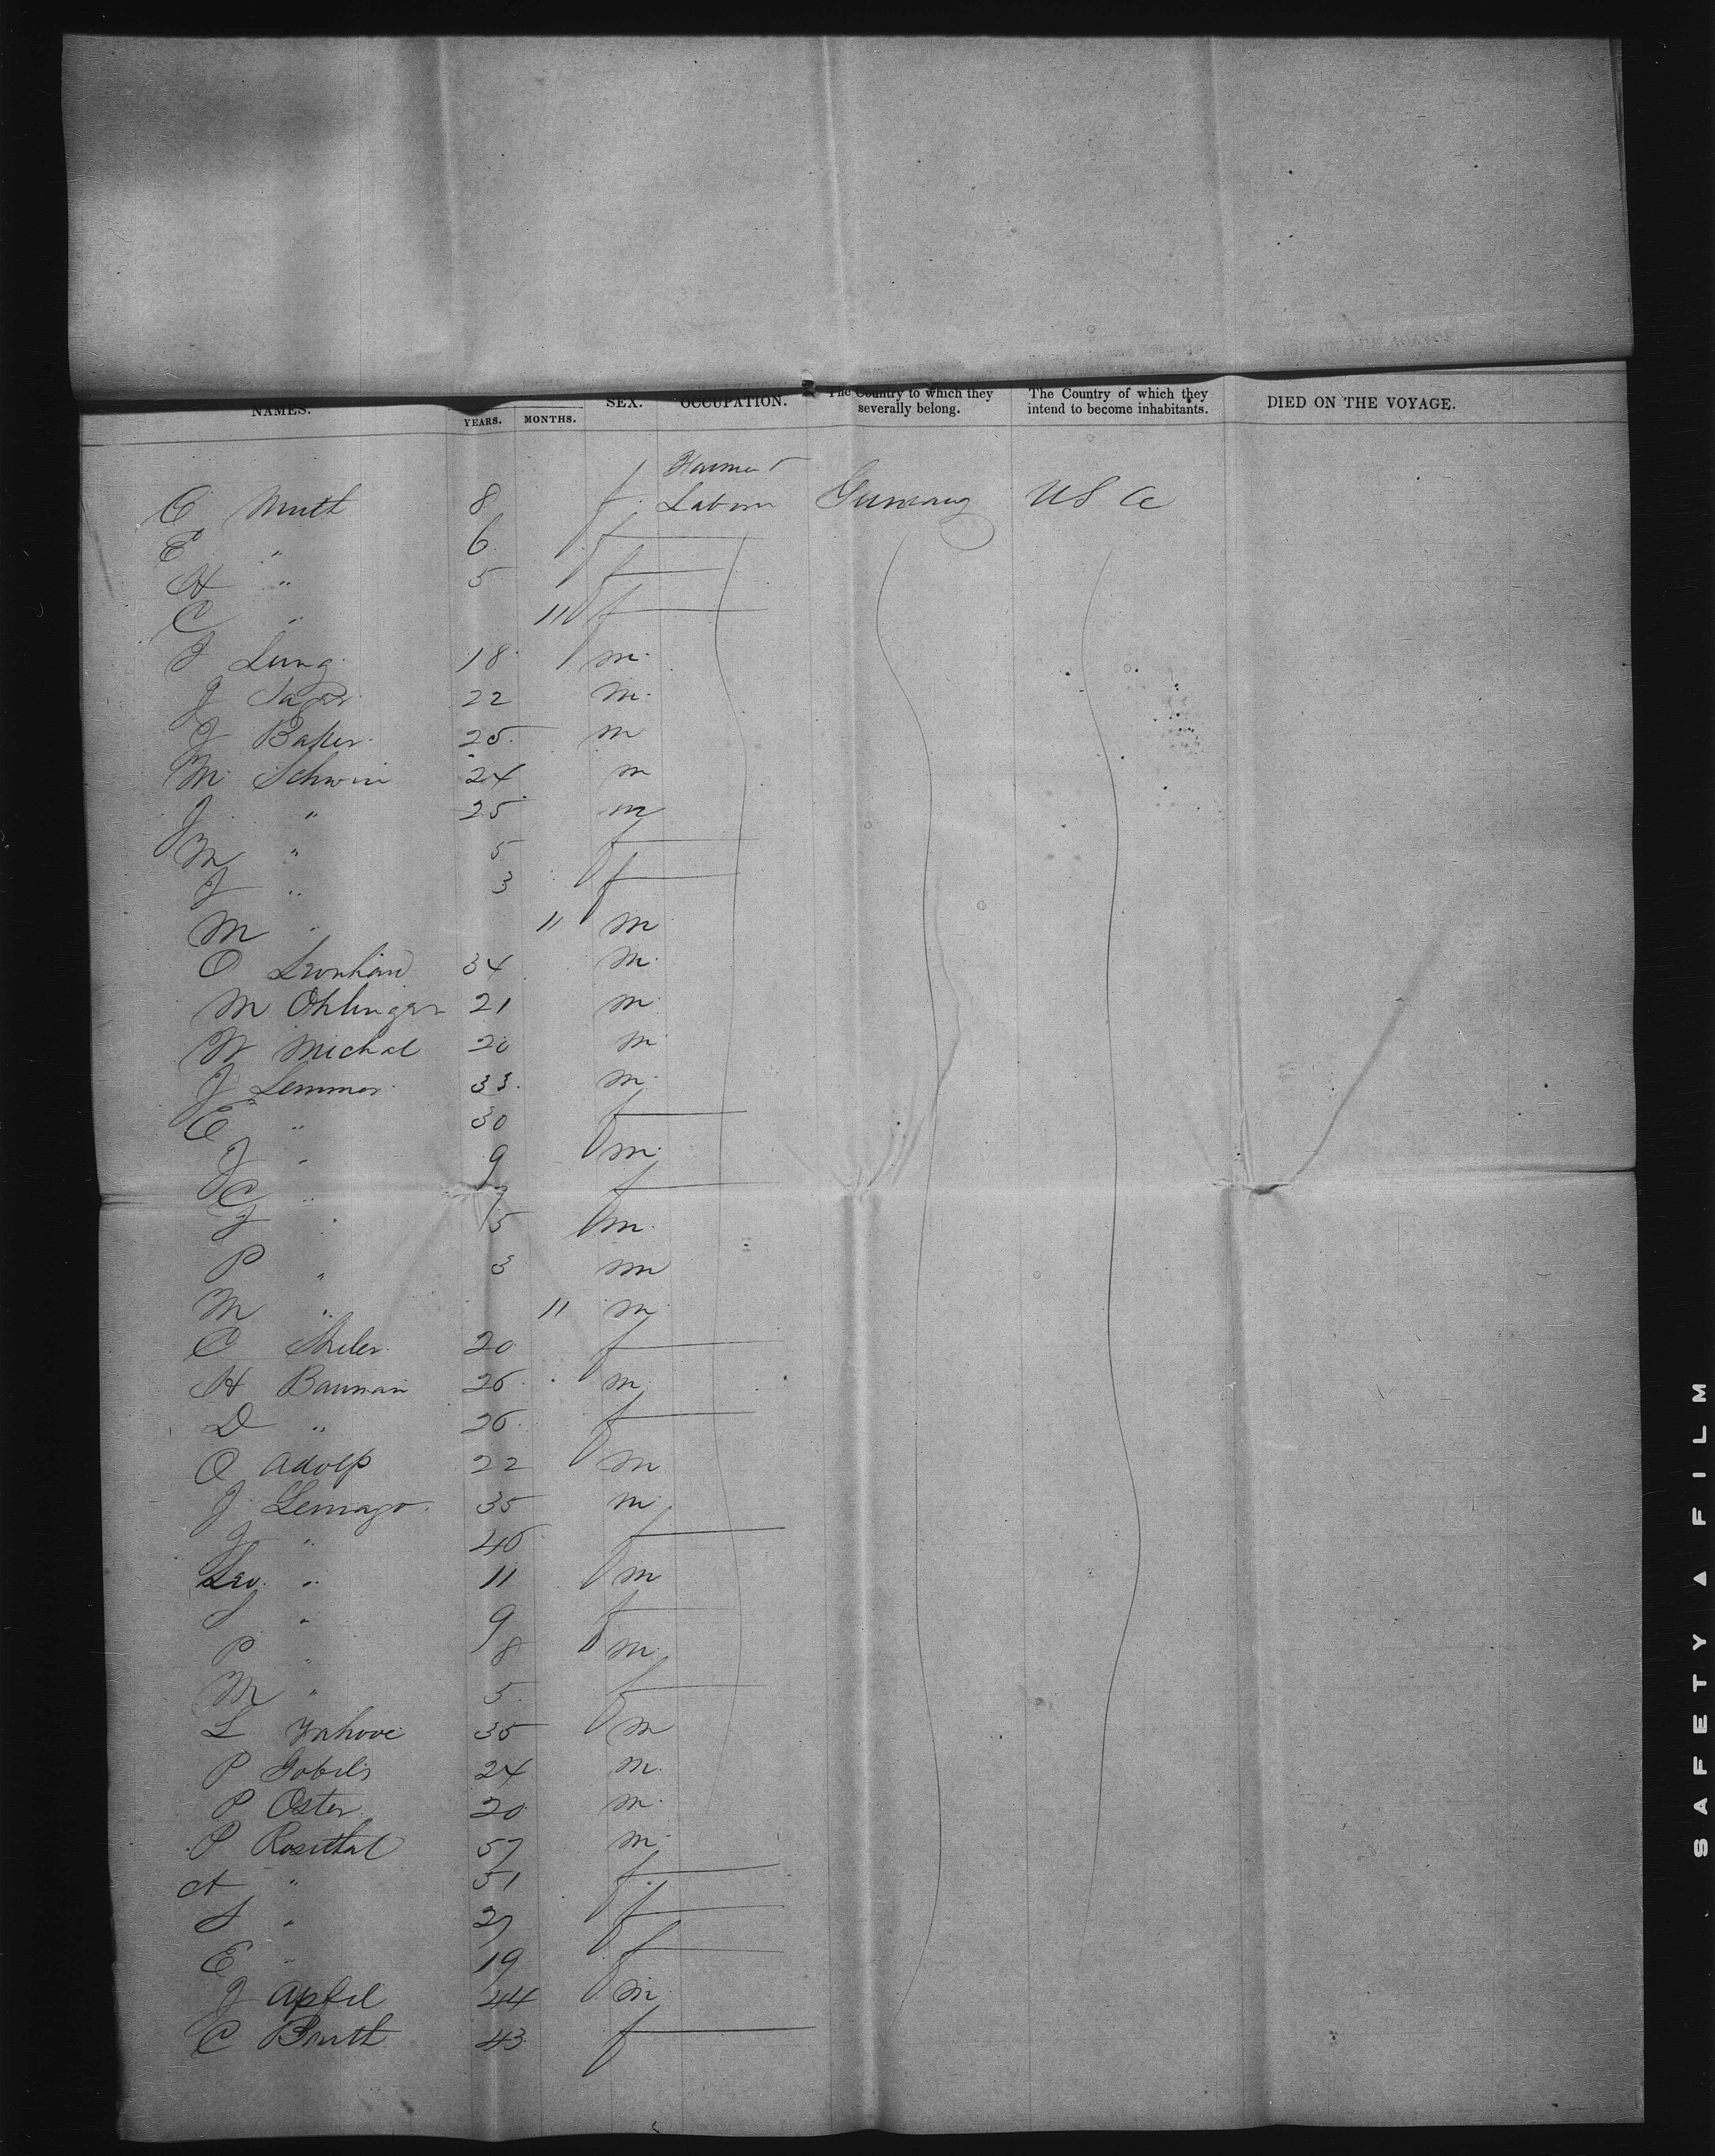 NAMES. YEARS. MONTHS. SEX. OCCUPATION. The Country to which they severally belong. The Country of which they intend to become inhabitants. DIED ON THE VOYAGE.
C Muth 8 f Labour Germany US A
E " 6 f
H " 5 f
C " 11 f
J Lung 18 m
J 22 m
J Baker 25 m
M Schwin 24 m
J " 25 m
M " 5 f
J " 3 f
M " 11 m
O Leonhard 34 m
M Ohlinger 21 m
W Michal 20 m
J Lemmer 33 m
E " 30 f
J " 9 m
C " 7 f
J " 5 m
P " 3 m
M " 11 m
C 20 f
H Bauman 26 m
D " 26 f
O Adolp 22 m
J 35 m
J " 46 f
Leo " 11 m
S " 9 f
P " 8 m
M " 5 f
L 35 m
P 24 m
P Oster 20 m
P Rosithal 57 m
A " 51 f
S " 27 f
E " 19 f
J Apfel 44 m
C 43 f
SAFETY ▲ FILM